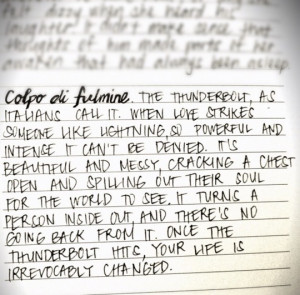 felt dizzy when she heard his
laughter. It didn't make sense that
thoughts of him made parts of her
awaken that had always been asleep.
Colpo di fulmine. THE THUNDERBOLT, AS
ITALIANS CALL IT. WHEN LOVE STRIKES
SOMEONE LIKE LIGHTNING, SO POWERFUL AND
INTENSE IT CAN'T BE DENIED. IT'S
BEAUTIFUL AND MESSY, CRACKING A CHEST
OPEN AND SPILLING OUT THEIR SOUL
FOR THE WORLD TO SEE. IT TURNS A
PERSON INSIDE OUT, AND THERE'S NO
GOING BACK FROM IT. ONCE THE
THUNDERBOLT HITS, YOUR LIFE IS
IRREVOCABLY CHANGED.